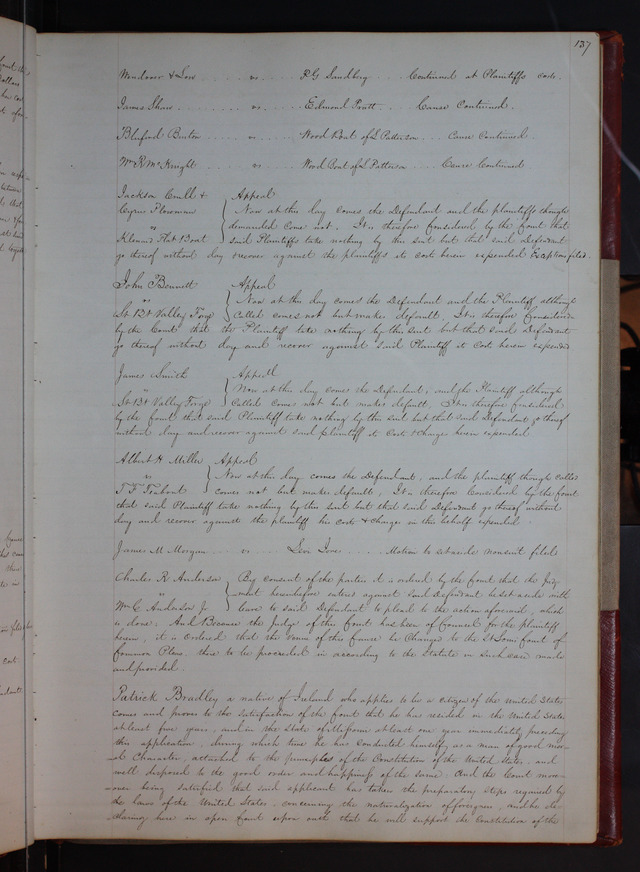 137
vs. P G Sandberg Continued at Plaintiffs costs.
James Shaw vs. Edmond Pratt Cause Continued.
Bluford Burton vs Wood Boat of L Patterson Cause Continued.
Wm R McKnight vs Wood Boat of L Patterson Cause Continued
Jackson & Appeal
Cyrus Plowman Now at this day comes the Defendant and the plaintiffs though
vs demanded Come not. It is therefore Considered by the Court that
Flat Boat said Plaintiffs take nothing by this suit but that said Defendant
go thereof without day & recover against the plaintiffs its costs herein expended Exception filed.
John Bennett Appeal
vs Now at this day comes the Defendant and the Plaintiff although
St Bt Valley Forge Called comes not but makes default. It is therefore Considered
by the Court that the Plaintiff take nothing by this suit but that said Defendant
go thereof without day and recover against said Plaintiff its Costs herein expended
James Smith Appeal
vs Now at this day comes the Defendant, and the Plaintiff although
St Bt Valley Forge Called comes not but makes default, It is therefore Considered
by the Court that said Plaintiff take nothing by this suit but that said Defendant go thereof
without day and recover against said plaintiff its Costs & Charges herein expended
Albert H. Miller Appeal
vs Now at this day comes the Defendant, and the plaintiff though called
comes not but makes default, It is therefore Considered by the Court
that said Plaintiff take nothing by this suit but that said Defendant go thereof without
day and recover against the plaintiff his costs & charges in this behalf expended.
James M Morgan vs Levi Motion to set aside nonsuit filed
Charles R Anderson By consent of the parties it is ordered by the Court that the Judg-
vs ment heretofore entered against said Defendant be set aside with
Wm C. Anderson Jr. leave to said Defendant to plead to the action aforesaid, which
is done. And Because the Judge of this Court has been of Counsel for the plaintiff
herein, it is Ordered that the venue of this Cause be Changed to the St Louis Court of
Common Pleas there to be proceeded in according to the Statute in such case made
and provided.
Patrick Bradley a native of Ireland who applies to be a citizen of the United States
comes and proves to the satisfaction of the Court that he has resided in the United States
at least five years, and in the State of Missouri at least one year immediately preceding
this application, during which time he has Conducted himself as a man of good mor-
al Character, attached to the principles of the Constitution of the United States, and
well disposed to the good order and happiness of the same. And the Court more-
over being satisfied that said applicant has taken the preparatory steps required by
the laws of the United States, concerning the naturalization of foreigners, and he de-
claring here in open Court upon oath that he will support the Constitution of the